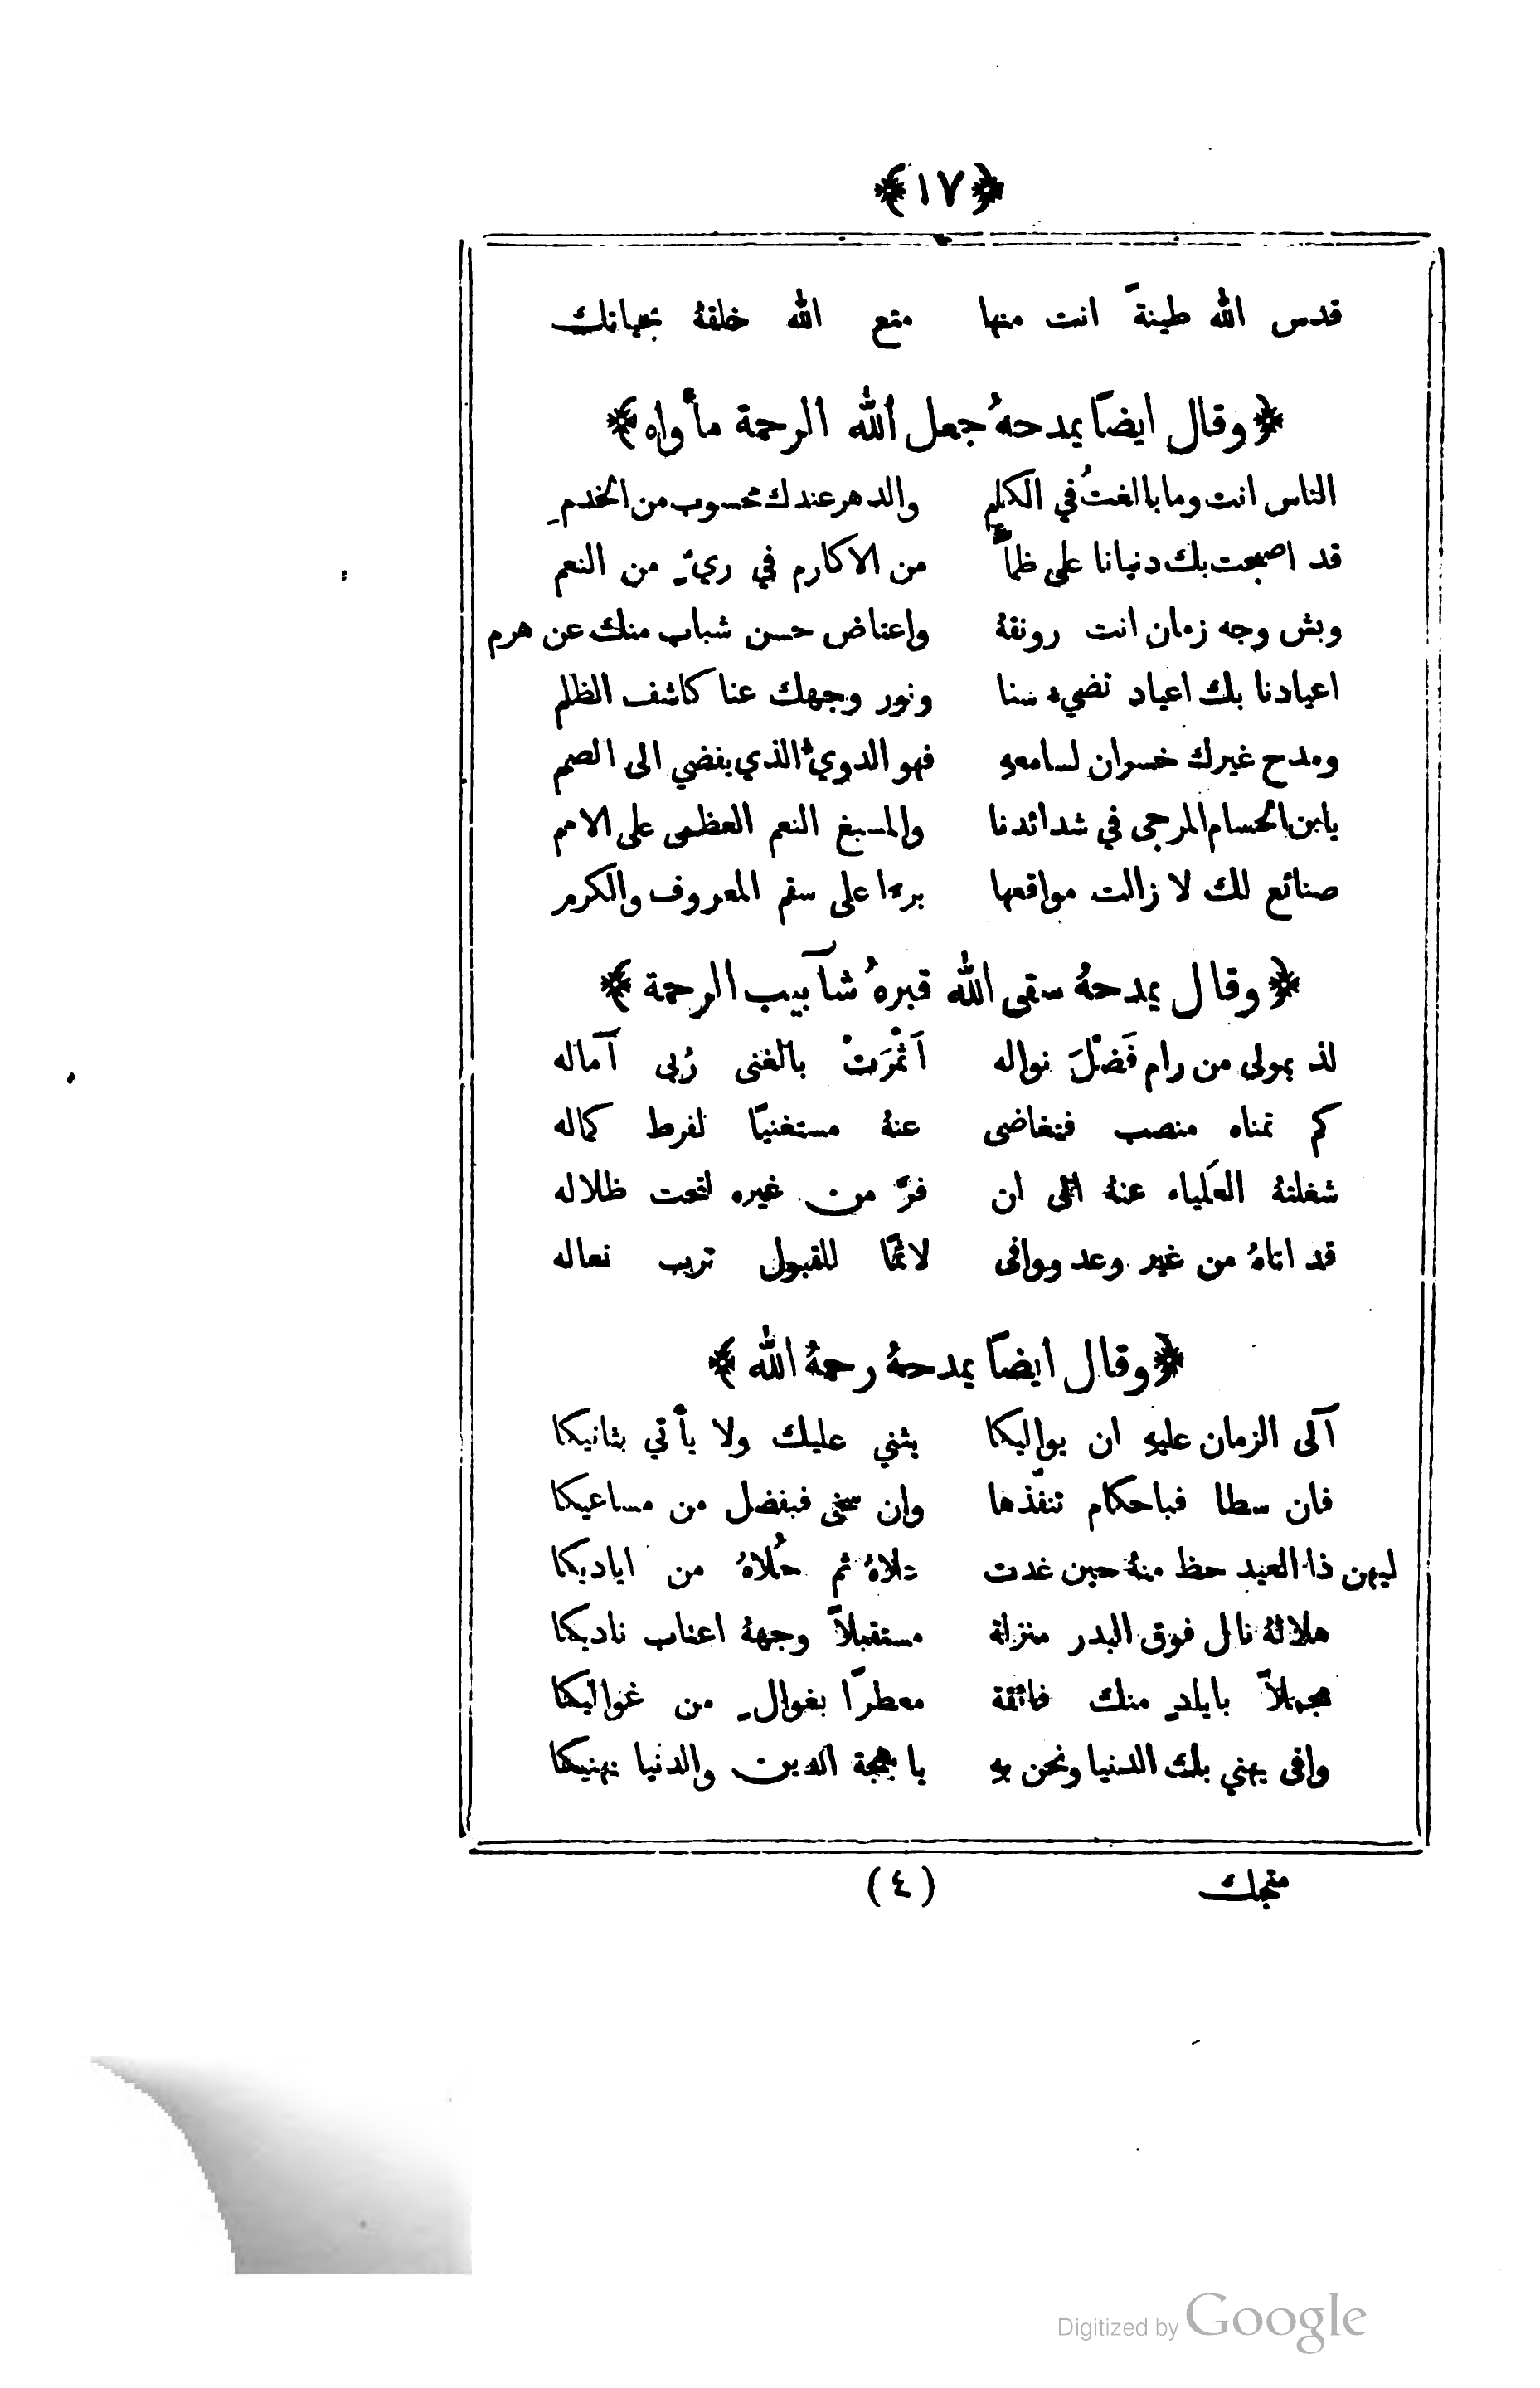 ﴿١٧﴾
قدس الله طينةً انت منها متع الله خلقهُ بحياتك
﴿وقال ايضاً يمدحهُ جعل الله الرحمة مأواه﴾
الناس انت وما بالغتُ في الكلم والدهر عندك محسوب من الخدمِ
قد اصبحت بك دنيانا على ظمأً من الاكارم في ريٍّ من النعم
وبش وجه زمان انت رونقهُ واعناض حسن شباب منك عن هرم
اعيادنا بك اعياد تضيء سنا ونور وجهك عنا كاشف الظلم
ومدح غيرك خسران لسامعهِ فهو الدويُّ الذي يفضي الى الصمم
يابن الحسام المرجى في شدائدنا والمسبغ النعم العظمى على الامم
صنائع لك لا زالت مواقعها برءا على سقم المعروف والكرم
﴿وقال يمدحهُ سقى الله قبرهُ شآبيب الرحمة﴾
لذ بمولى من رام فَضْلَ نواله اَثْمَرَتْ بالغنى رُبى آماله
كم تمناه منصب فتغاضى عنهُ مستغنيًا لفرط كماله
شغلتهُ العَلياء عنهُ الى ان فرّ من غيره لتحت ظلاله
قد اتاهُ من غير وعد ووافى لاثمًا للقبول ترب نعاله
﴿وقال ايضاً يمدحهُ رحمهُ الله﴾
آلى الزمان عليهِ ان يواليكا يثني عليك ولا يأتي بثانيكا
فان سطا فباحكام تنفّذها وان سخى فبفضل من مساعيكا
ليهن ذا العيد حظ منهُ حين غدت تلاهُ ثم حُلاهُ من اياديكا
هلالهُ نال فوق البدر منزلة مستقبلاً وجههُ اعتاب ناديكا
مجملاً بايادٍ منك فائقة معطرًا بغوالٍ من غواليكا
وافى يهني بك الدنيا ونحن بهِ يا بهجة الدين والدنيا نهنيكا
منجك (٤)
Digitized by Google